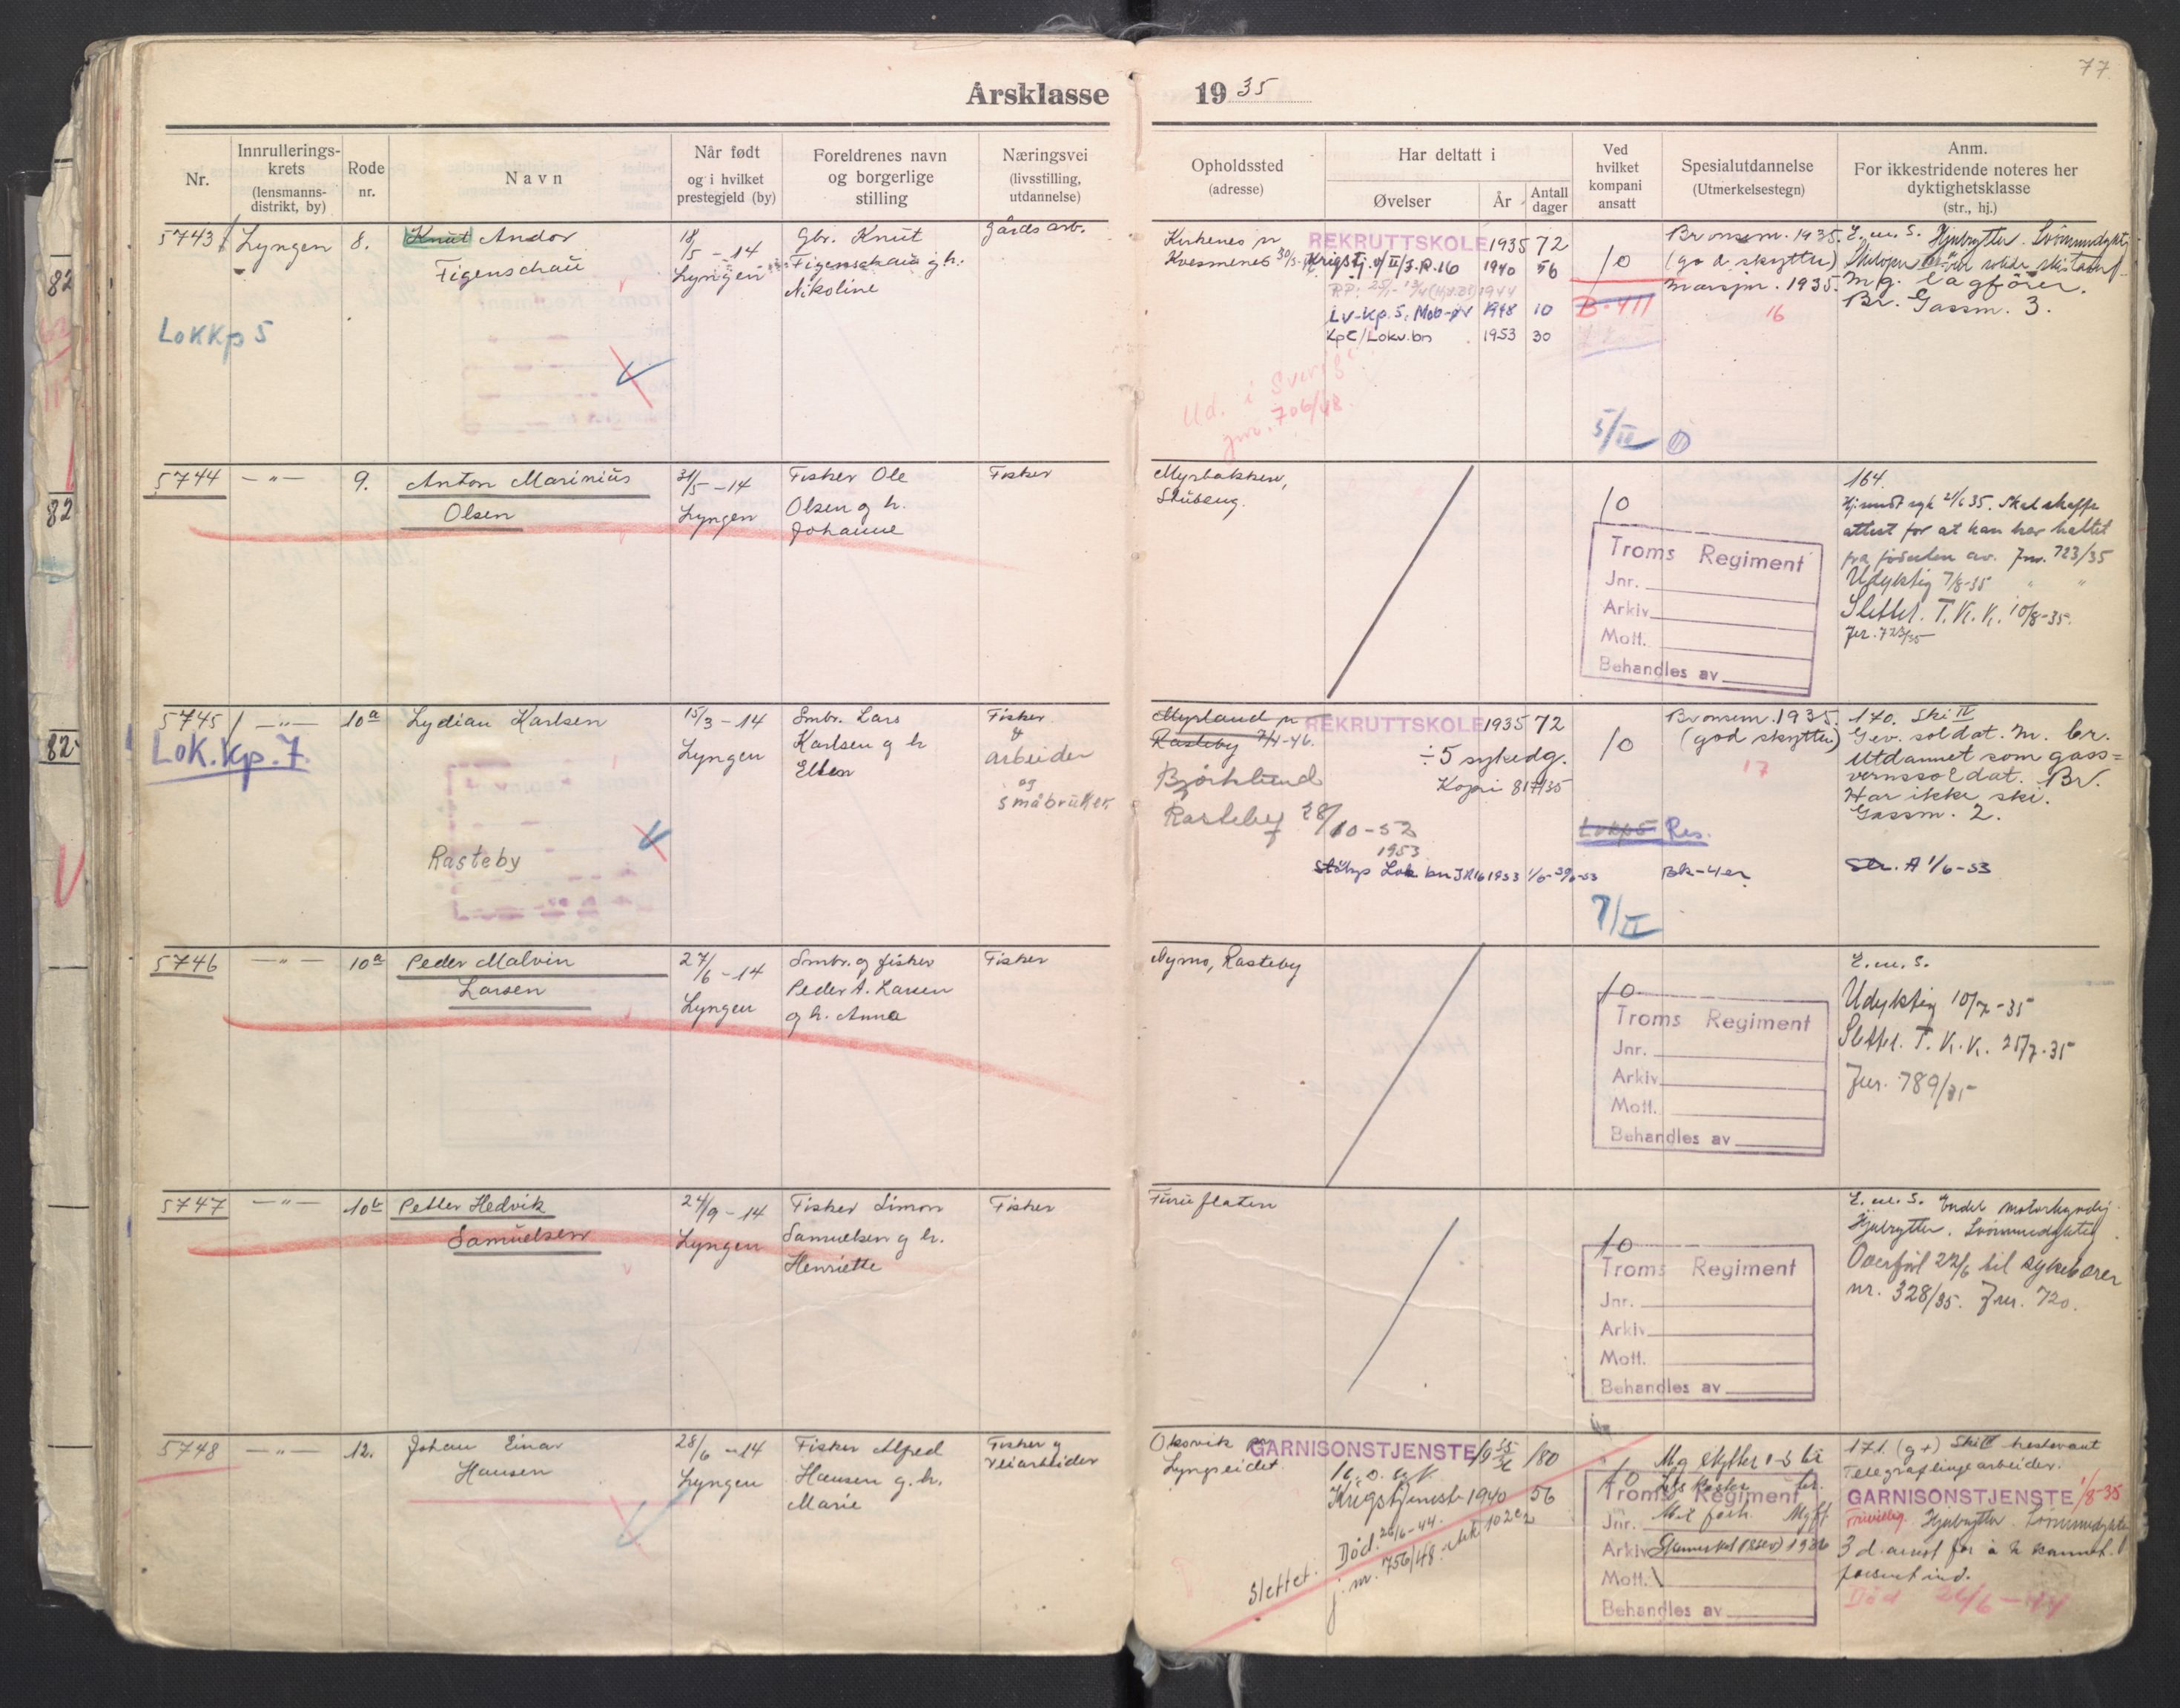 77.
Årsklasse 1935
Nr.
Innrullerings-
krets
(lensmanns-
distrikt, by)
Rode
nr.
Navn
Når født
og i hvilket
prestegjeld (by)
Foreldrenes navn
og borgerlige
stilling
Næringsvei
(livsstilling,
utdannelse)
Opholdssted
(adresse)
Har deltatt i
Øvelser
År
Antall
dager
Ved
hvilket
kompani
ansatt
Spesialutdannelse
(Utmerkelsestegn)
Anm.
For ikkestridende noteres her
dyktighetsklasse
(str., hj.)
5743
Lyngen
8.
Knut Andor
Figenschau
18/5 -14
Lyngen
Gbr. Knut
Figenschau g h.
Nikoline
Gårdsarb.
LoKKp 5
Kirkenes
Kvesmenes
REKRUTTSKOLE 1935 72
Krigstj. II/I.R.16 1940 56
1944
Lv-Kp. 5. Mob-øv 1948 10
Kp C/Lokv.bn 1953 30
Ud. i Sverig
jnr. 706/48.
10
B-411
5/II
Bronsem. 1935.
(god skytter)
marsjm. 1935.
16
E. m. S. Hjulrytter. Svømmedyktig
Mg. lagfører.
Br. Gassm. 3.
5744
- " -
9.
Anton Marinius
Olsen
31/5 -14
Lyngen
Fisker Ole
Olsen g h.
Johanne
Fisker
Myrbakken,
Skibeng.
10
Troms Regiment
Jnr.
Arkiv
Mott.
Behandles av
164.
21/6 35. Skal skaffe
attest for at han har haltet
fra fødselen av. Jnr. 723/35
Udyktig 7/8-35 " "
Slettet. T. K. K. 10/8-35.
Jnr. 723/35
5745
- " -
10a
Lydian Karlsen
15/3 -14
Lyngen
Smbr. Lars
Karlsen g h
Ellen
Fisker
&
arbeider
og
småbruker
LoK.Kp.7.
Rasteby
Myrland
Rasteby
Bjørklund
Rasteby 28/10-52
REKRUTTSKOLE 1935 72
÷ 5 sykedg.
Kopi 817/35
1953
Lok bn IR16 1953
10
Res.
7/II
Bronsem. 1935.
(god skytter)
17
170. Ski IV
Gev. soldat. m. br.
Utdannet som gass=
vernssoldat. Br.
Har ikke ski.
Gassm. 2.
Str. A 1/6-53
5746
- " -
10a
Peder Malvin
Larsen
27/6 -14
Lyngen
Smbr. og fisker
Peder A. Larsen
g h. Anna
Fisker
Nymo, Rasteby
10
Troms Regiment
Jnr.
Arkiv
Mott.
Behandles av
E. m. S.
Udyktig 10/7-35
Slettet. T. K. K. 25/7-35
Jnr. 789/35
5747
- " -
10b
Petter Hedvik
Samuelsen
24/9 -14
Lyngen
Fisker Simon
Samuelsen g h.
Henriette
Fisker
Furuflaten
10
Troms Regiment
Jnr.
Arkiv
Mott.
Behandles av
E. m. S. Endel motorkyndig
Hjulrytter. Svømmedyktig
Overført 22/6 til sykebærer
nr. 328/35. Jnr. 720.
5748
- " -
12.
Johan Einar
Hansen
28/6 -14
Lyngen
Fisker Alfred
Hansen g. h.
Marie
Fisker g
veiarbeider
Oksvik
Lyngseidet.
GARNISONSTJENSTE 1935/36 180
Krigstjenest 1940 56
Slettet. Død. 26/6-44.
j. nr. 756/48.
10
Mg skytter
Troms Regiment
Jnr.
Arkiv
Mott.
Behandles av
171. (g+) Ski hestevant
Telegraflinjearbeider.
GARNISONSTJENSTE 1/8-35
Frivillig Hjulrytter. Svømmedyktig
3 d. arrest for
Død 26/6-44